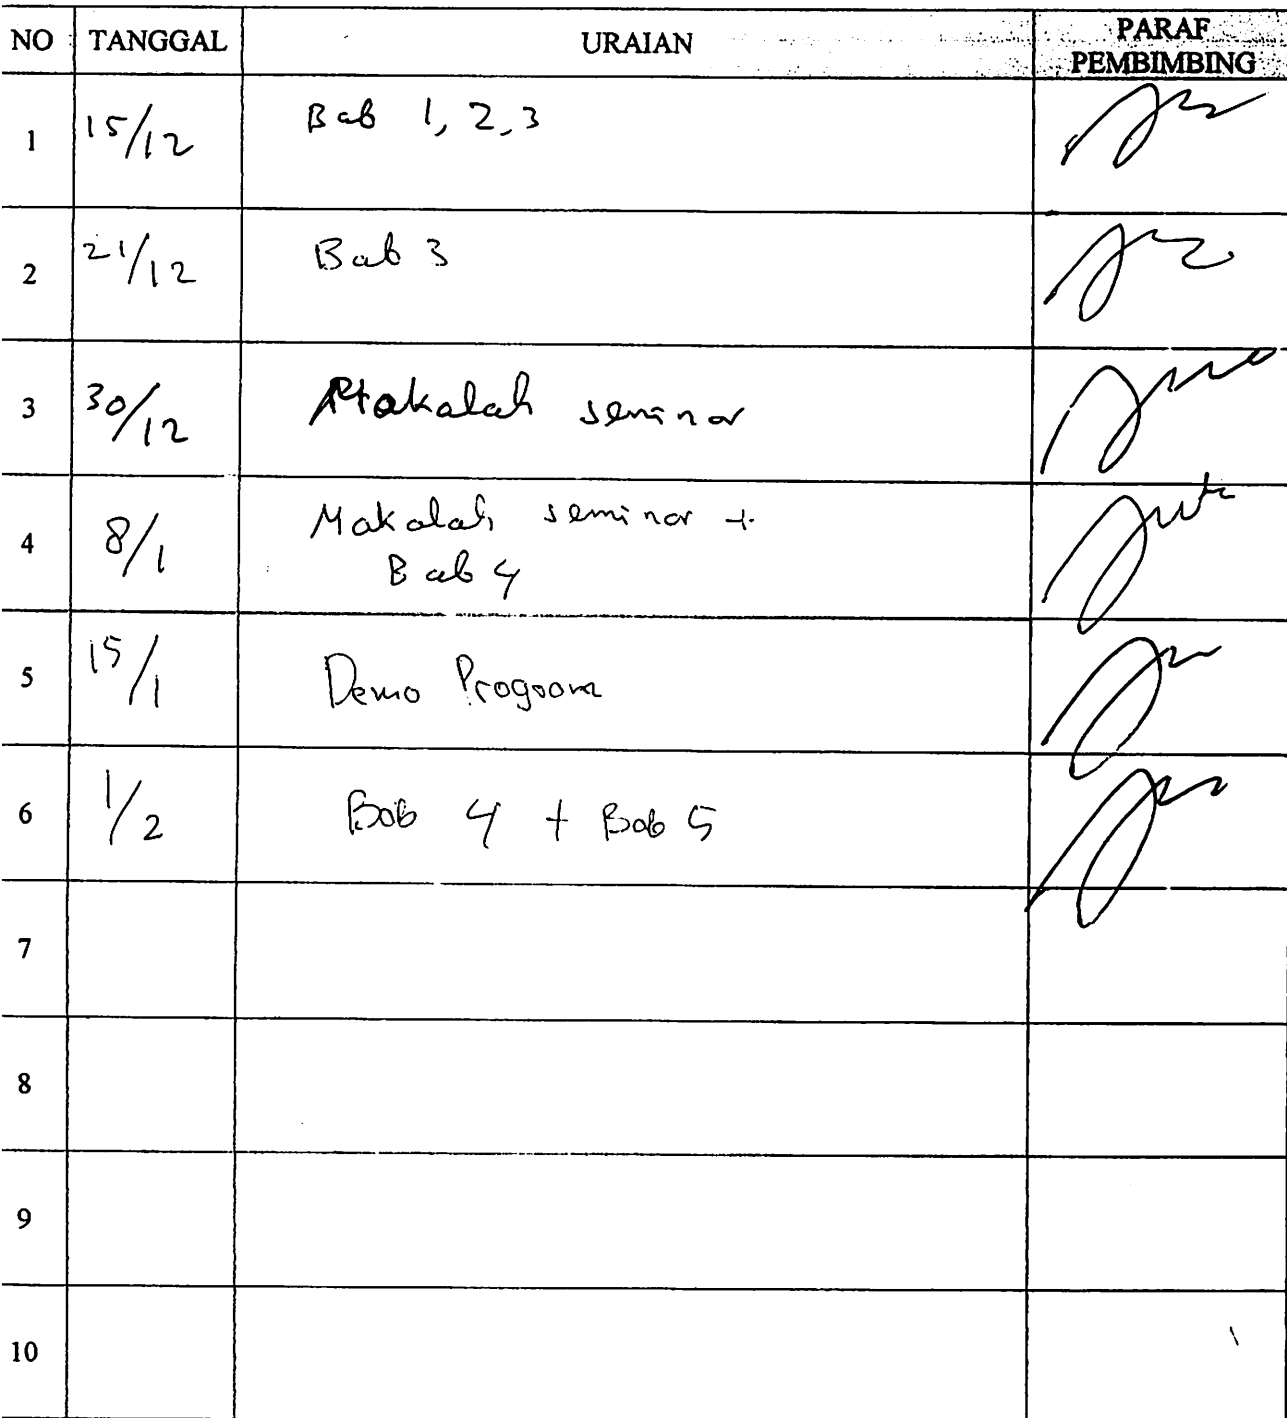 NO TANGGAL URAIAN PARAF PEMBIMBING
1 15/12 Bab 1, 2, 3
2 21/12 Bab 3
3 30/12 Makalah seminar
4 8/1 Makalah seminar +
Bab 4
5 15/1 Demo Program
6 1/2 Bab 4 + Bab 5
7
8
9
10